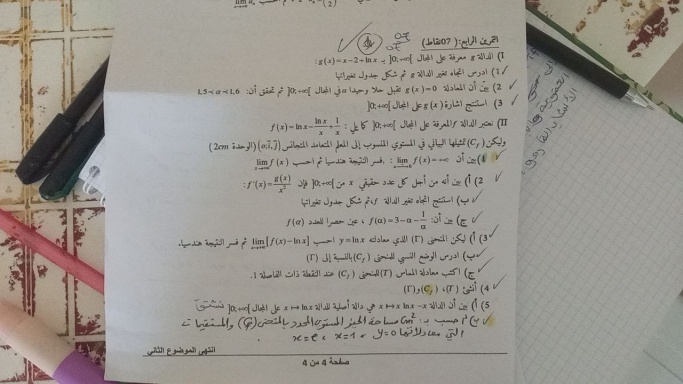 التمرين الرابع: ( 07 نقاط)
I) الدالة g معرفة على المجال ]0;+∞[ بـ g(x)=x-2+lnx:
1) ادرس اتجاه تغير الدالة g ثم شكل جدول تغيراتها
2) بين أن المعادلة g(x)=0 تقبل حلا وحيدا α في المجال ]0;+∞[ ثم تحقق أن: 1,5<α<1,6
3) استنتج اشارة g(x) على المجال ]0;+∞[
II) نعتبر الدالة f المعرفة على المجال ]0;+∞[ كما يلي: f(x)=lnx-lnx/x+1/x
وليكن (Cf) تمثيلها البياني في المستوي المنسوب إلى المعلم المتعامد المتجانس (o;i,j) (الوحدة 2cm)
1) بين أن lim f(x)=+∞ . فسر النتيجة هندسيا ثم احسب lim f(x)
2) أ) بين أنه من أجل كل عدد حقيقي x من ]0;+∞[ فإن f'(x)=g(x)/x²:
ب) استنتج اتجاه تغير الدالة f، ثم شكل جدول تغيراتها
ج) بين أن: f(α)=3-α-1/α ، عين حصرا للعدد f(α)
3) أ) ليكن المنحنى (Γ) الذي معادلته y=lnx احسب lim[f(x)-lnx] ثم فسر النتيجة هندسيا.
ب) ادرس الوضع النسبي للمنحنى (Cf) بالنسبة إلى (Γ)
ج) اكتب معادلة المماس (T) للمنحنى (Cf) عند النقطة ذات الفاصلة 1.
4) أنشئ (T)، (Cf) و(Γ)
5) أ) بين أن الدالة x↦xlnx-x هي دالة أصلية للدالة x↦lnx على المجال ]0;+∞[
ب) احسب بـ cm² مساحة الحيز المستوي المحدد بالمنحنى (Cf) والمستقيمات
التي معادلاتها y=0 ، x=1 ، x=e
انتهى الموضوع الثاني
صفحة 4 من 4